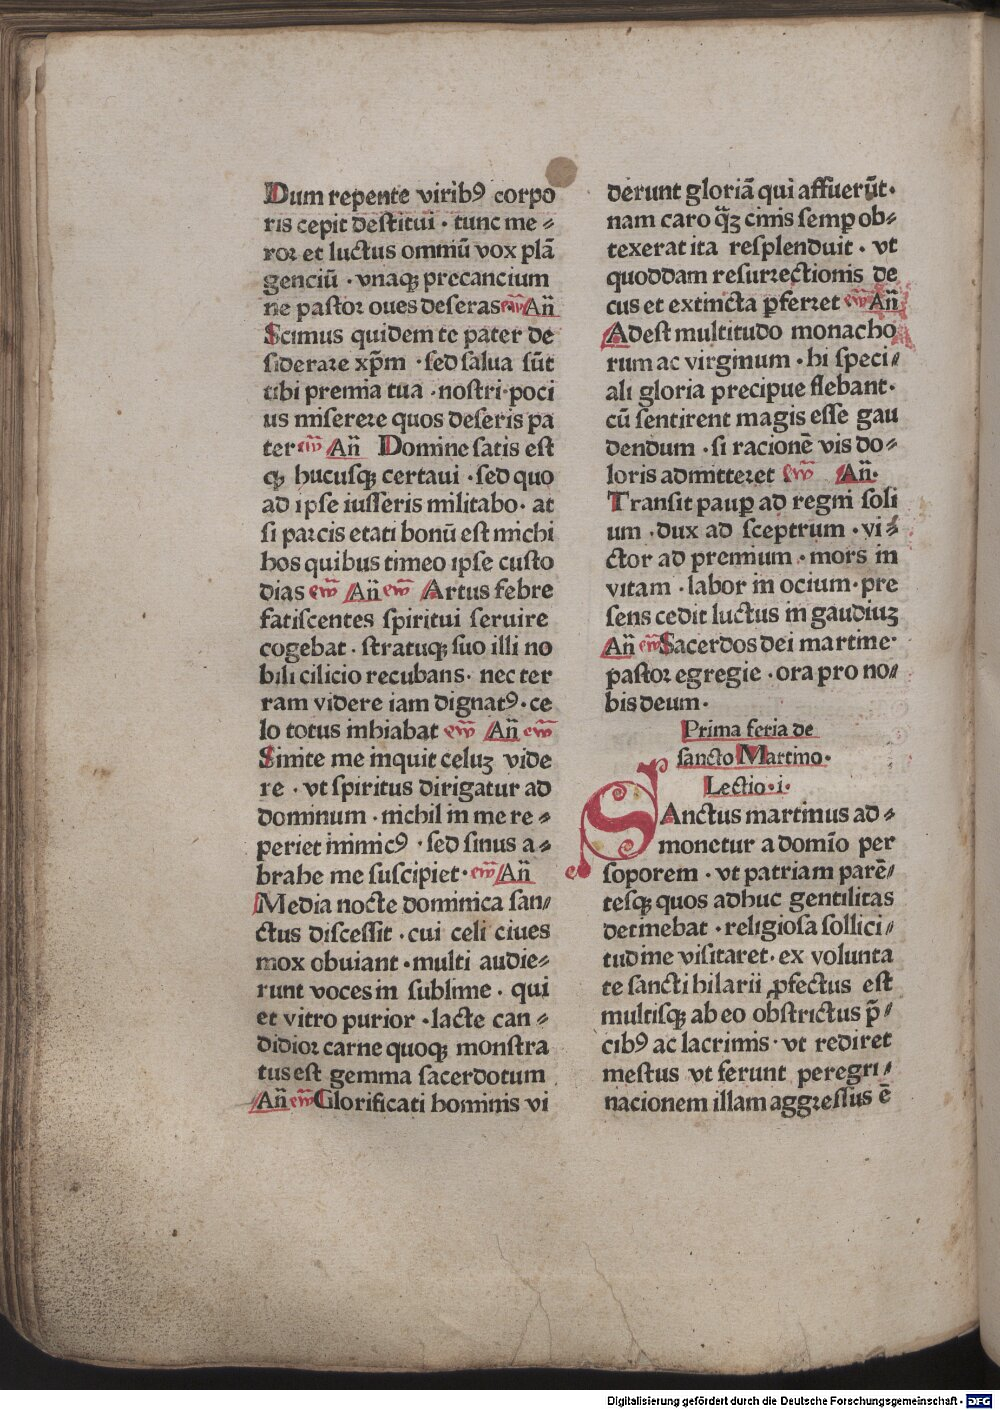 Dum repente viribꝰ corpo
ris cepit destitui · tunc me⸗
ror et luctus omniū vox plā
genciū · vnaqꝫ precancium
ne pastor oues deseras evv̄ Añ
Scimus quidem te pater de
siderare xp̄m · sed salua sūt
tibi premia tua · nostri·poci
us miserere quos deseris pa
ter evv̄ Añ Domine satis est
qꝫ hucusqꝫ certaui · sed quo
ad ipse iusseris militabo· at
si parcis etati bonū est michi
hos quibus timeo ipse custo
dias evv̄ Añ evv̄ Artus febre
fatiscentes spiritui seruire
cogebat · stratuqꝫ suo illi no
bili cilicio recubans· nec ter
ram videre iam dignatꝰ· ce
lo totus inhiabat evv̄ Añ evv̄
Sinite me inquit celuꝫ vide
re · vt spiritus dirigatur ad
dominum · nichil in me re⸗
periet inimicꝰ · sed sinus a⸗
brahe me suscipiet· evv̄ Añ
Media nocte dominica san⸗
ctus discessit · cui celi ciues
mox obuiant · multi audie⸗
runt voces in sublime · qui
et vitro purior · lacte can⸗
didior carne quoqꝫ monstra
tus est gemma sacerdotum
Añ evv̄ Glorificati hominis vi
derunt gloriā qui affuerūt·
nam caro q̄ꝫ cinis semꝑ ob⸗
texerat ita resplenduit · vt
quoddam resurrectionis de
cus et extincta ꝑferret evv̄ Añ
Adest multitudo monacho
rum ac virginum · hi speci⸗
ali gloria precipue flebant·
cū sentirent magis esse gau
dendum · si racionē vis do⸗
loris admitteret evv̄ Añ·
Transit pauꝑ ad regni soli
um · dux ad sceptrum · vi⸗
ctor ad premium · mors in
vitam · labor in ocium· pre
sens cedit luctus in gaudiuꝫ
Añ evv̄ Sacerdos dei martine·
pastor egregie · ora pro no⸗
bis deum·
Prima feria de
sancto Martino·
Lectio·i·
SAnctus martinus ad⸗
monetur a domīo per
soporem · vt patriam parē⸗
tesqꝫ quos adhuc gentilitas
detinebat · religiosa sollici⸗
tudine visitaret· ex volunta
te sancti hilarii ꝓfectus est
multisqꝫ ab eo obstrictus p̄⸗
cibꝰ ac lacrimis · vt rediret
mestus vt ferunt peregri⸗
nacionem illam aggressus ē
Digitalisierung gefördert durch die Deutsche Forschungsgemeinschaft - DFG